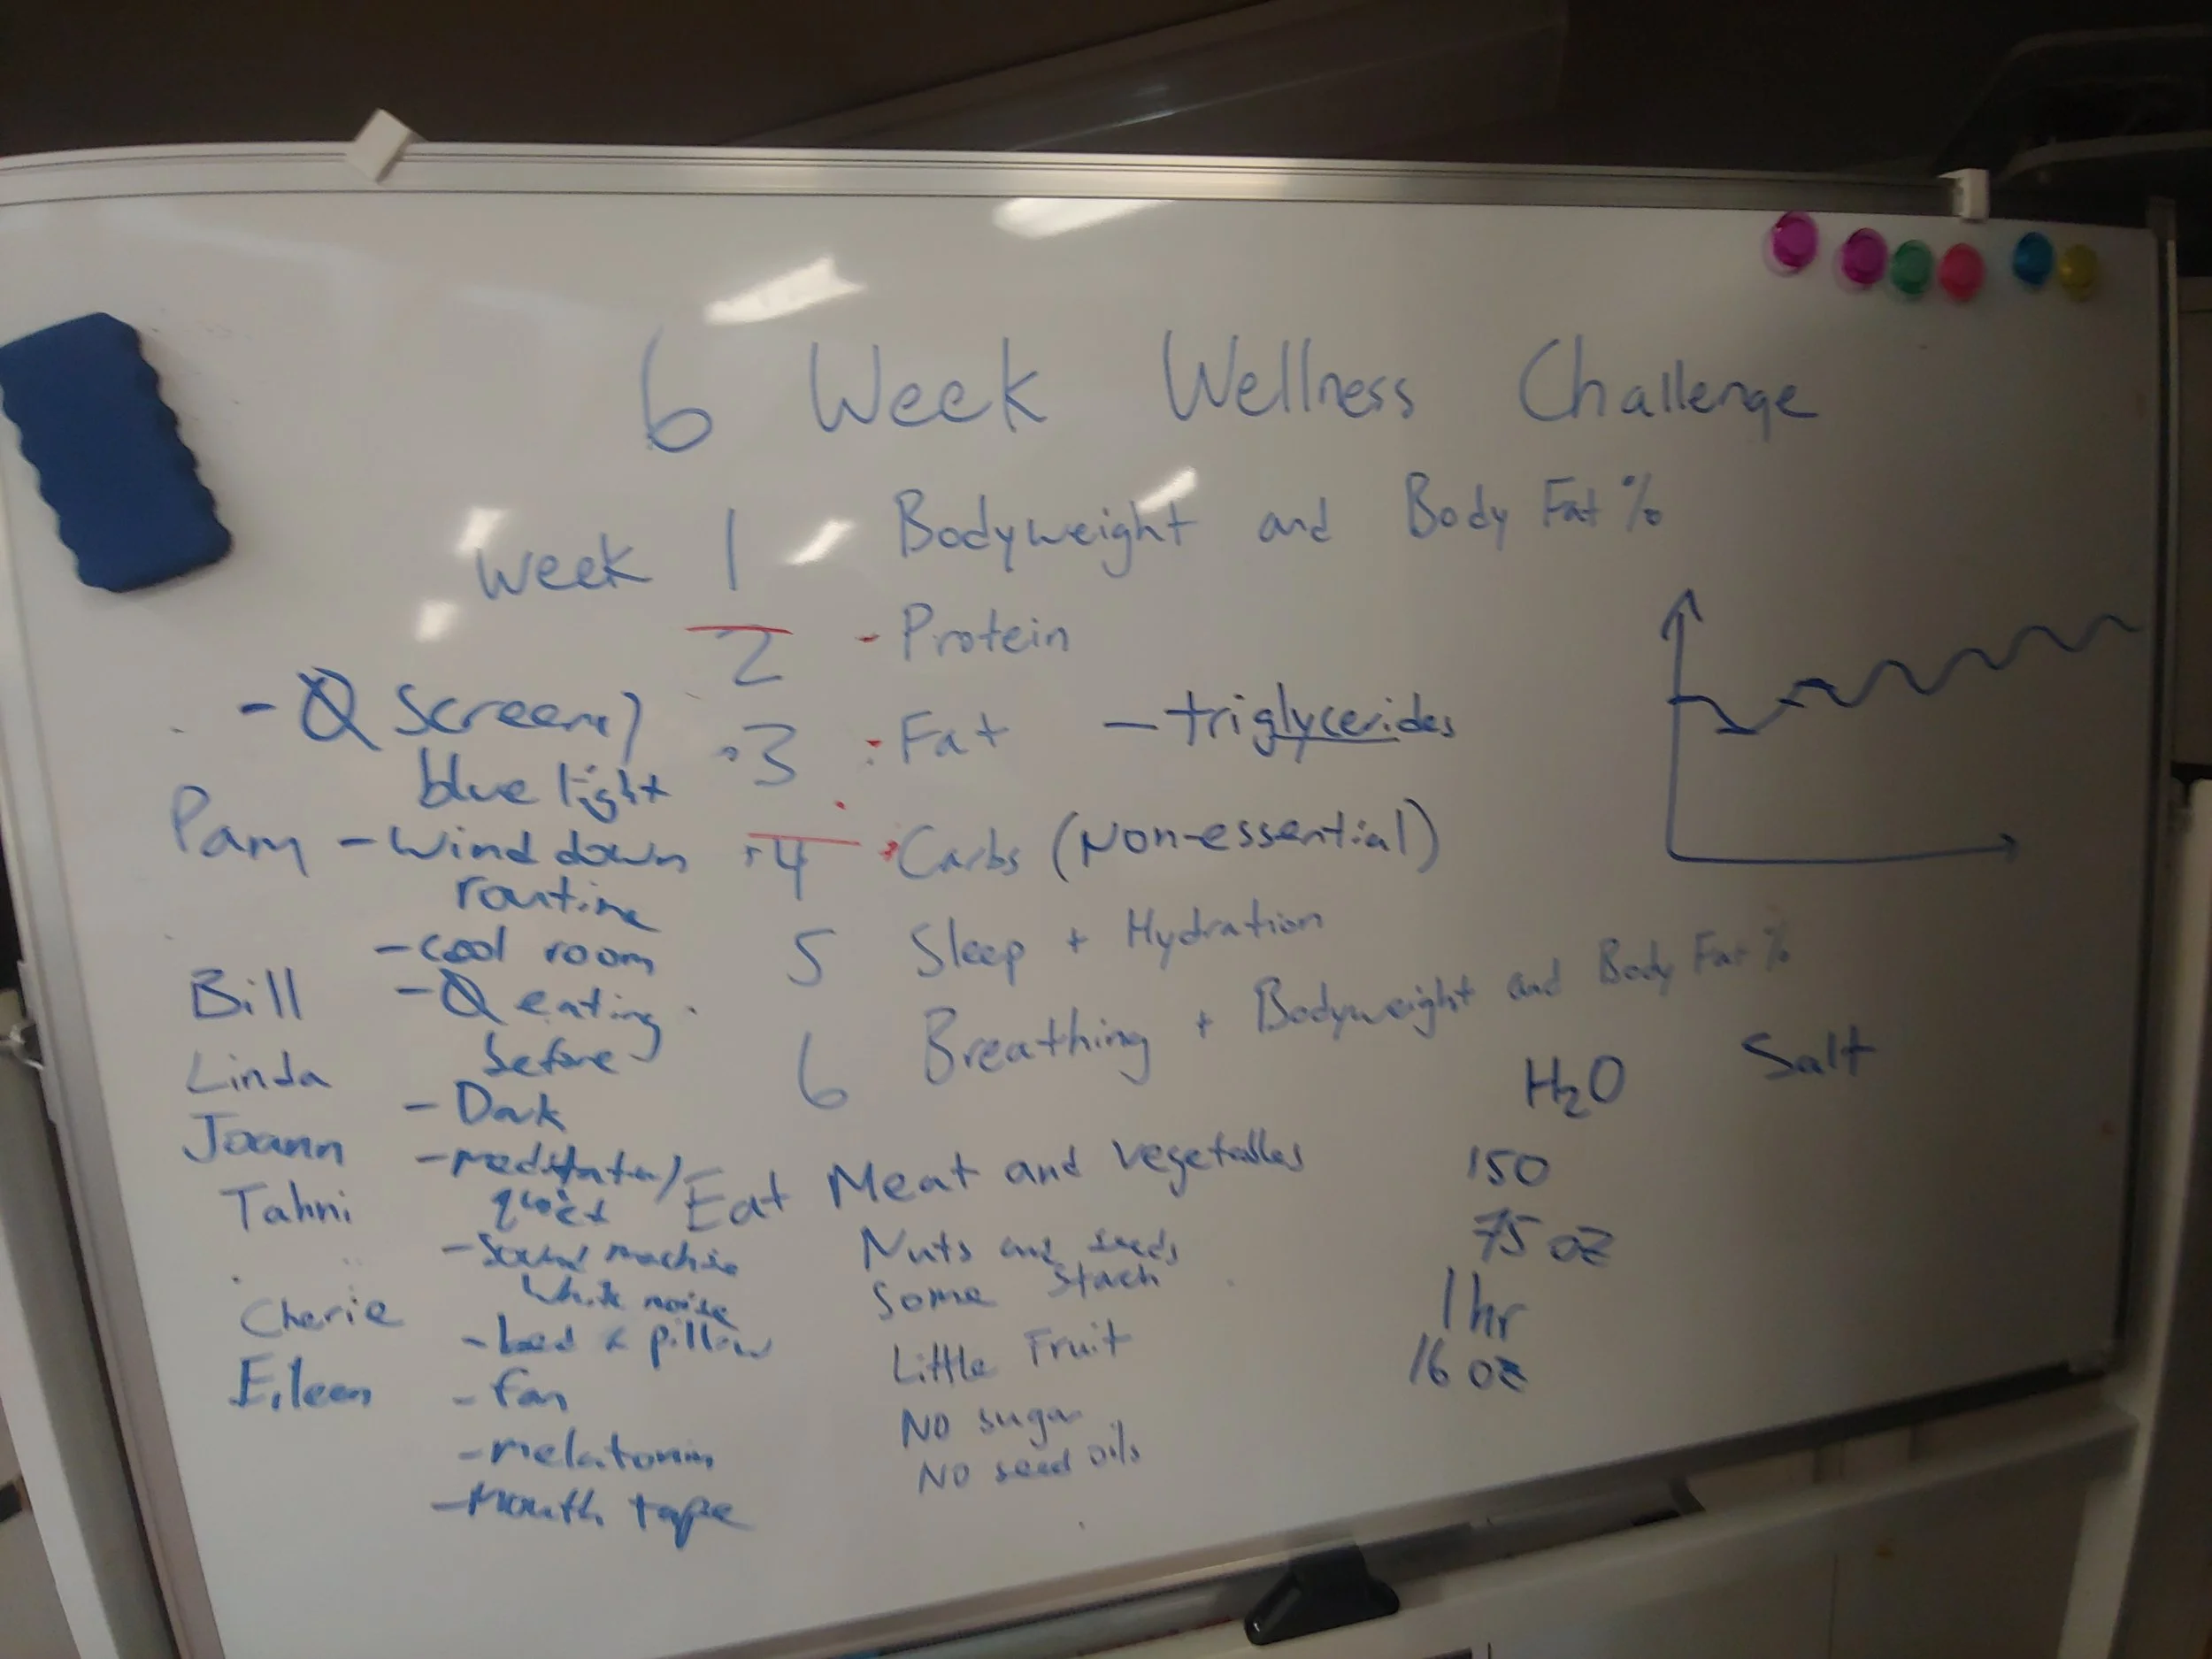 6 Week Wellness Challenge
Week 1 Bodyweight and Body Fat %
2 - Protein
3 : Fat - triglycerides
4 Carbs (Non-essential)
5 Sleep + Hydration
6 Breathing + Bodyweight and Body Fat %
- Ø screens/
blue light
Pam - Wind down
routine
- cool room
Bill - Ø eating
before
Linda
- Dark
Joann
quiet
Tahni
- Sound machine
white noise
Cherie
- bed & pillow
Eileen
- fan
- melatonin
- Mouth tape
Eat Meat and vegetables
Nuts and seeds
Some Stach
Little Fruit
No sugar
No seed oils
H2O Salt
150
75 oz
1 hr
16 oz